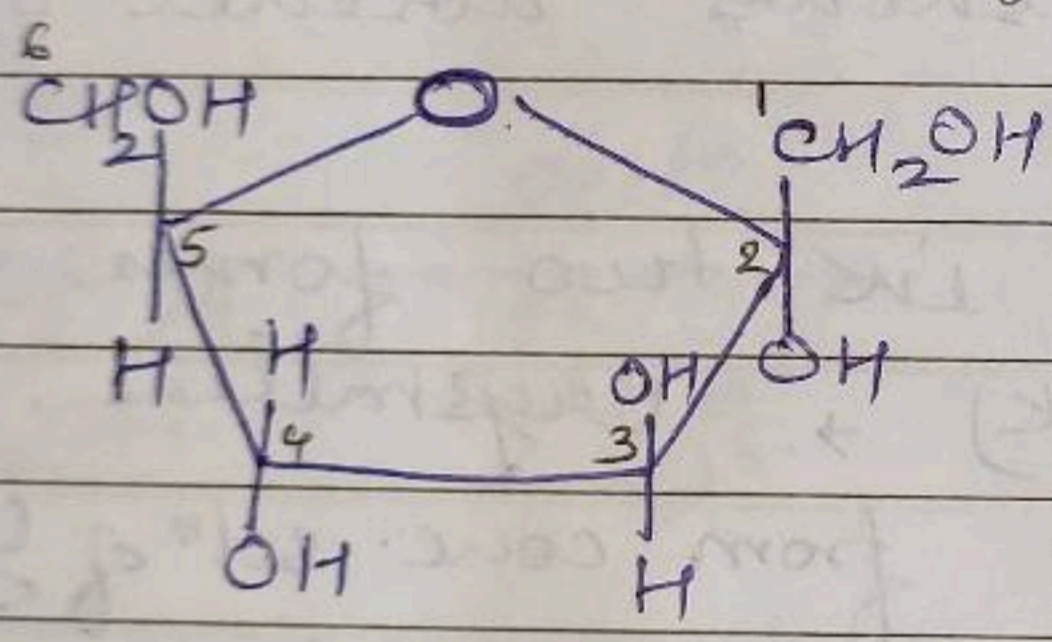 6
CH2OH O 1
CH2OH
5 2
H H OH OH
4 3
OH H